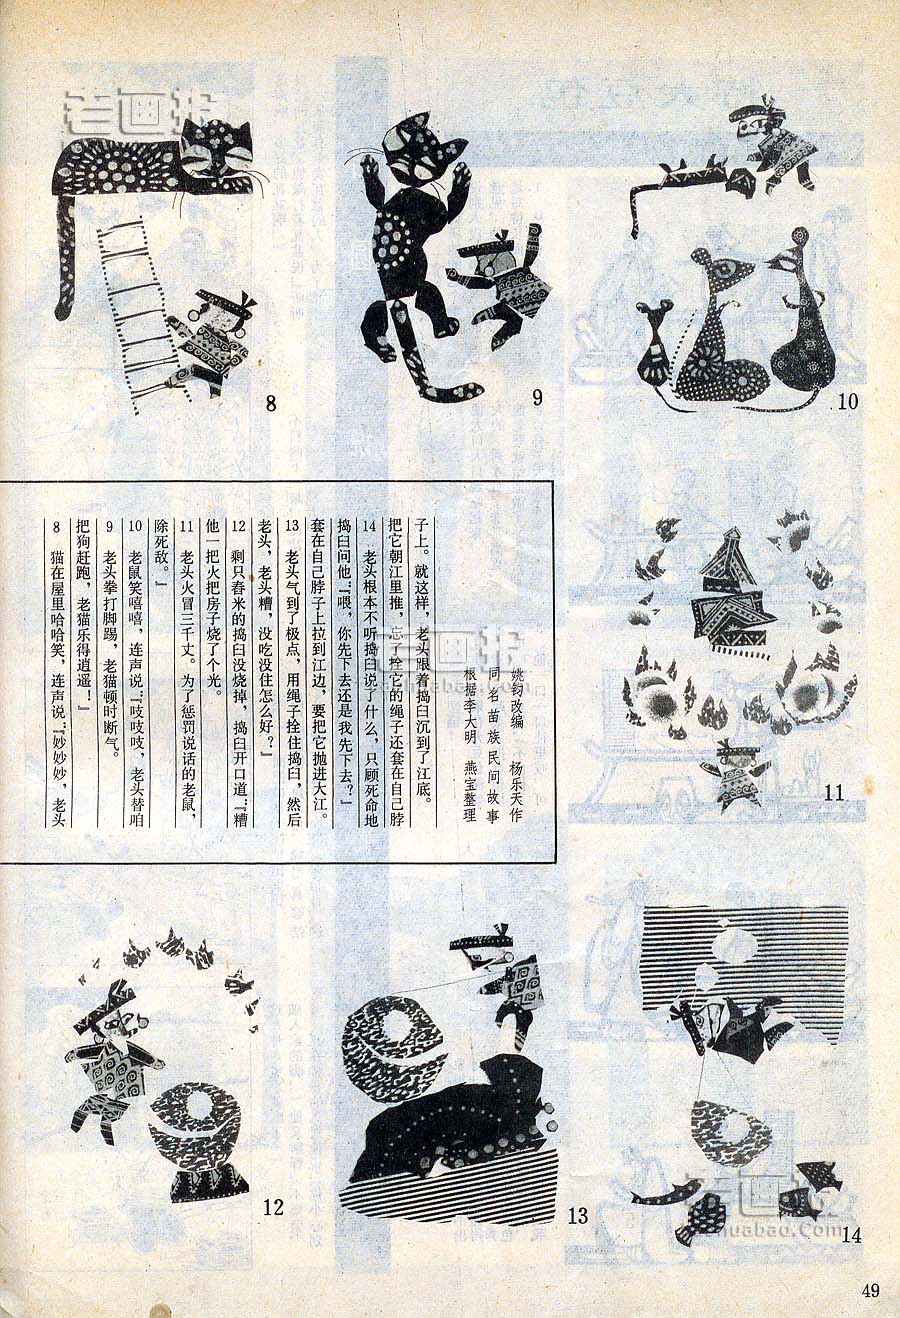 老画报
8
9
10
8 猫在屋里哈哈笑，连声说：『妙妙妙，老头
把狗赶跑，老猫乐得逍遥！』
9 老头拳打脚踢，老猫顿时断气。
10 老鼠笑嘻嘻，连声说：『吱吱吱，老头替咱
除死敌。』
11 老头火冒三千丈。为了惩罚说话的老鼠，
他一把火把房子烧了个光。
12 剩只舂米的捣臼没烧掉，捣臼开口道：『糟
老头，老头糟，没吃没住怎么好？』
13 老头气到了极点，用绳子拴住捣臼，然后
套在自己脖子上拉到江边，要把它抛进大江。
捣臼问他：『喂，你先下去还是我先下去？』
14 老头根本不听捣臼说了什么，只顾死命地
把它朝江里推，忘了拴它的绳子还套在自己脖
子上。就这样，老头跟着捣臼沉到了江底。
根据李大明 燕宝整理
同名苗族民间故事
姚钧改编 杨乐天作
老画报
11
12
13
14
老画报
huabao.com
49